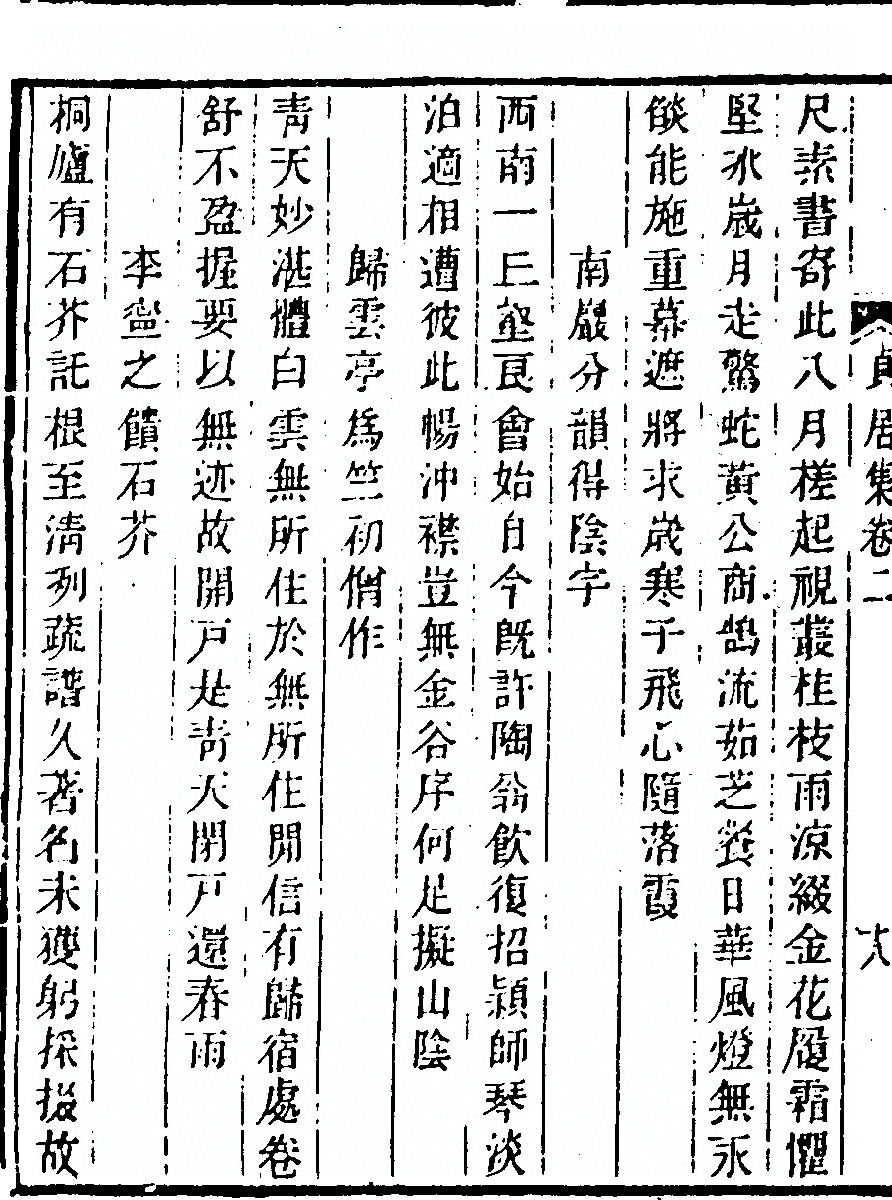 貞居集卷二　十八
尺素書寄此八月槎起視叢桂枝雨涼綴金花履霜懼
堅冰歲月走驚蛇黃公商鵠流茹芝餐日華風燈無永
燄能施重幕遮將求歲寒干飛心隨落霞
南巖分韻得陰字
西南一丘壑良會始自今既許陶翁飲復招穎師琴淡
泊適相遭彼此暢沖襟豈無金谷序何足擬山陰
歸雲亭爲竺初僧作
青天妙湛體白雲無所住於無所住閒信有歸宿處卷
舒不盈握要以無迹故開戸是青天閉戸還春雨
李盅之饋石芥
桐廬有石芥託根至淸列疏譜久著名未獲躬採掇故